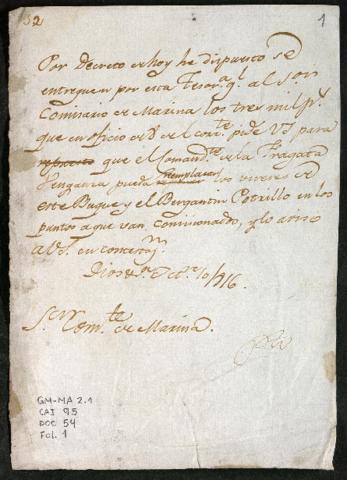 32
1
Por Decreto de hoy he dispuesto se
entreguen por esta Tesor.a gl. al Sor
Comisario de Marina los tres mil p.s
que en oficio de 8 del corr.te pide VS para
que el Comand.te de la Fragata
Venganza pueda remplazar los viveres de
este Buque y el Bergantin Potrillo en los
puntos a que van comisionado, y lo aviso
a VS. en contextaz.n
Dios &.a 10/816.
Sor
Com.te de Marina.
GM-MA 2.1
CAJ 95
DOC 54
Fol. 1